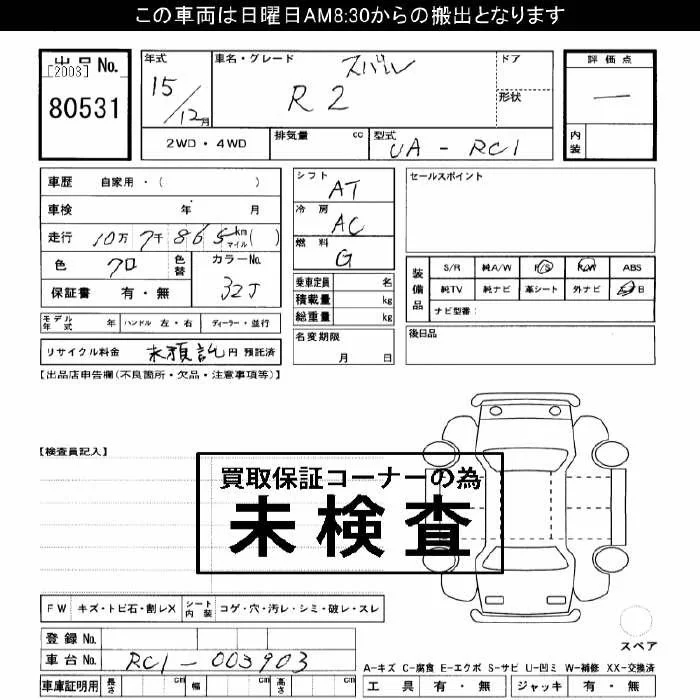 この車両は日曜日AM8:30からの搬出となります
出品 No.
[2003]
80531
年式
15/12月
車名・グレード
スバル
R2
ドア
形状
評価点
—
内装
2WD・4WD
排気量 cc
型式
UA-RC1
車歴 自家用・( )
車検 年 月
走行 10万7千865 km マイル ( )
色 クロ
色替
カラーNo.
32J
保証書 有・無
モデル年式 年
ハンドル 左・右
ディーラー・並行
リサイクル料金 未預託 円 預託済
シフト
AT
冷房
AC
燃料
G
乗車定員 名
積載量 kg
総重量 kg
名変期限
月 日
セールスポイント
装備品
S/R 純A/W P/S P/W ABS
純TV 純ナビ 革シート 外ナビ
ナビ型番:
後日品
【出品店申告欄(不良箇所・欠品・注意事項等)】
【検査員記入】
買取保証コーナーの為
未検査
FW キズ・トビ石・割レX
シート内装 コゲ・穴・汚レ・シミ・破レ・スレ
登録 No.
車台 No. RC1-003903
車庫証明用 長さ cm 幅 cm 高さ cm
スペア
A-キズ C-腐食 E-エクボ S-サビ U-凹ミ W-補修 XX-交換済
工具 有・無 ジャッキ 有・無